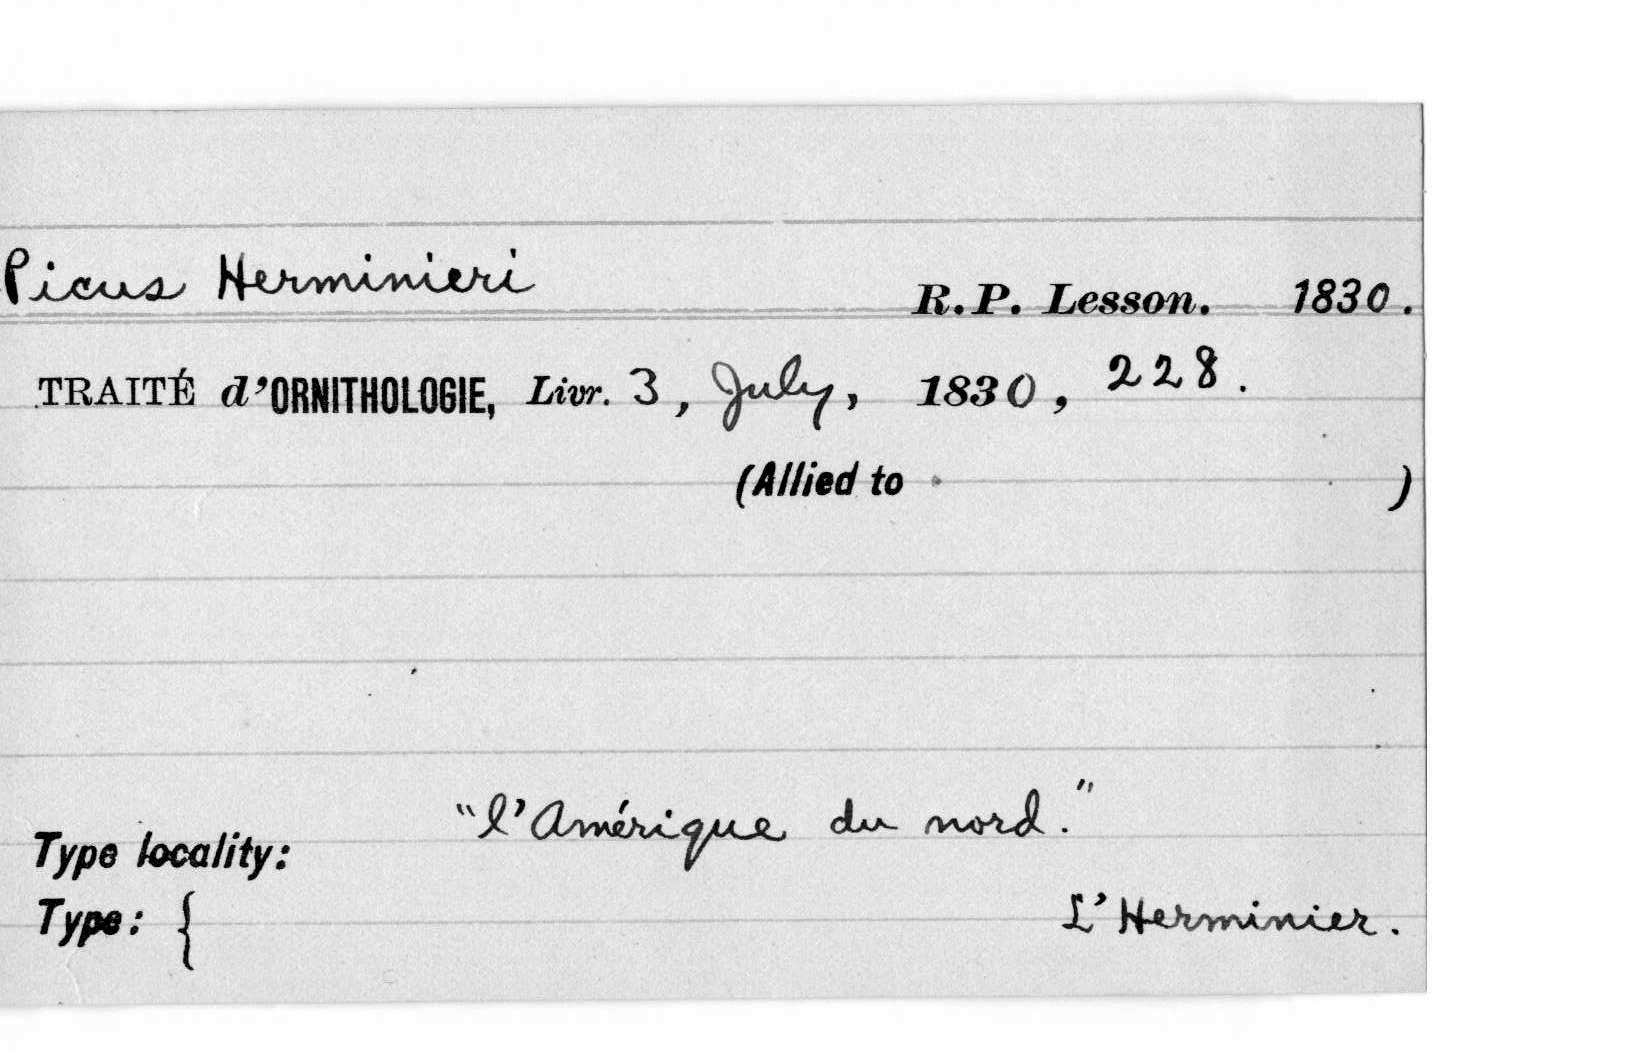 Picus Herminieri R.P. Lesson. 1830.
TRAITÉ d'ORNITHOLOGIE, Livr. 3, July, 1830, 228.
(Allied to )
"l'Amérique du nord."
Type locality:
Type: { L'Herminier.